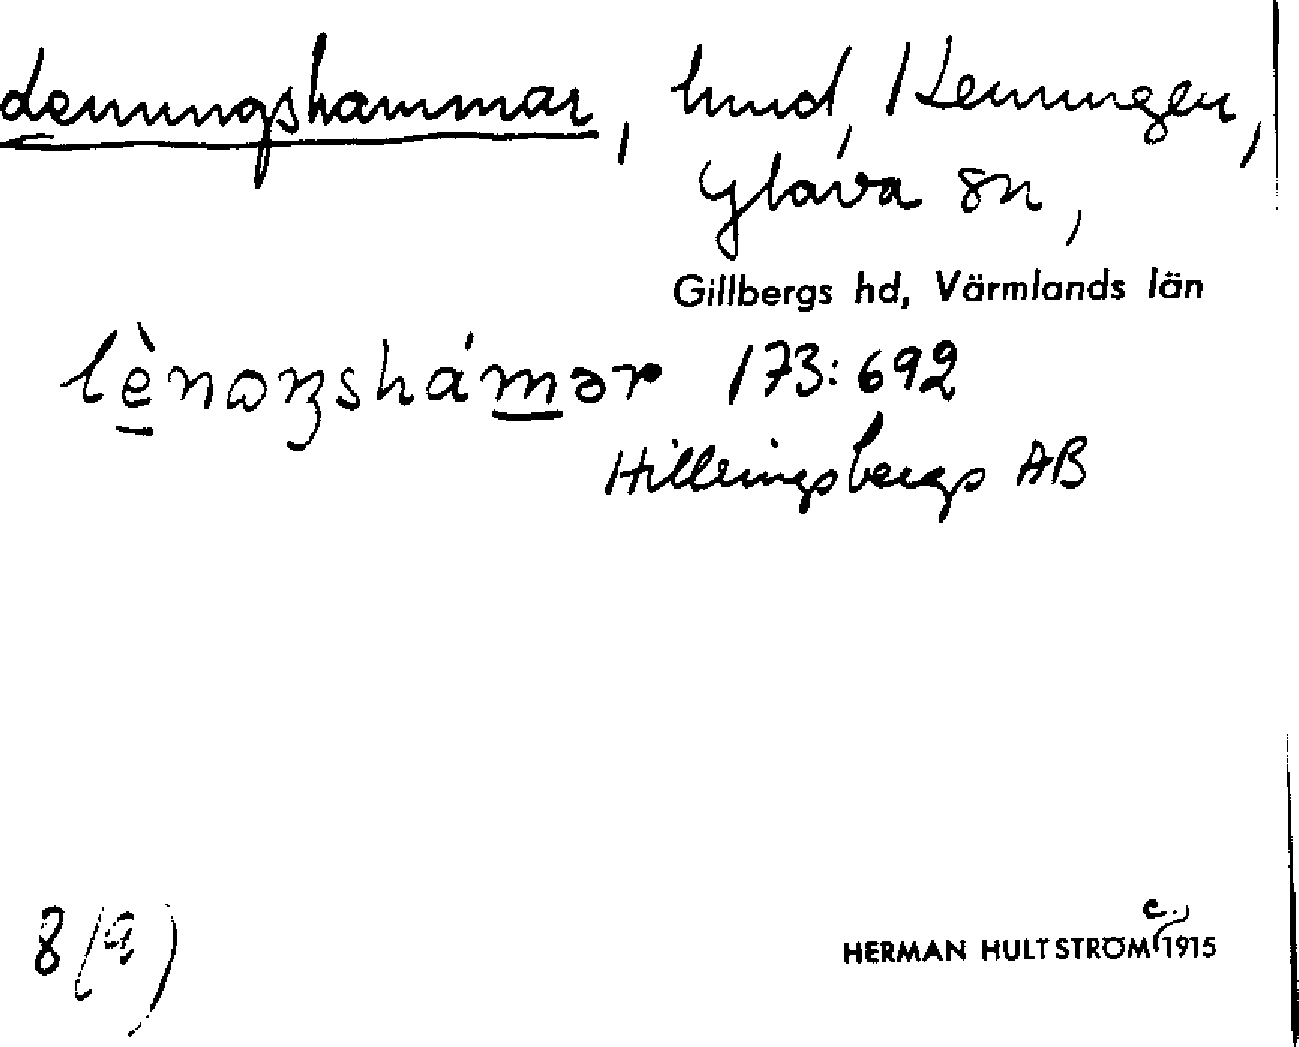 Lenungshammar, hmd, Lenungen,
Glava sn,
Gillbergs hd, Värmlands län
lènωŋshámər 173:692
Hillringsbergs AB
8(9)
HERMAN HULTSTRÖM c. 1915